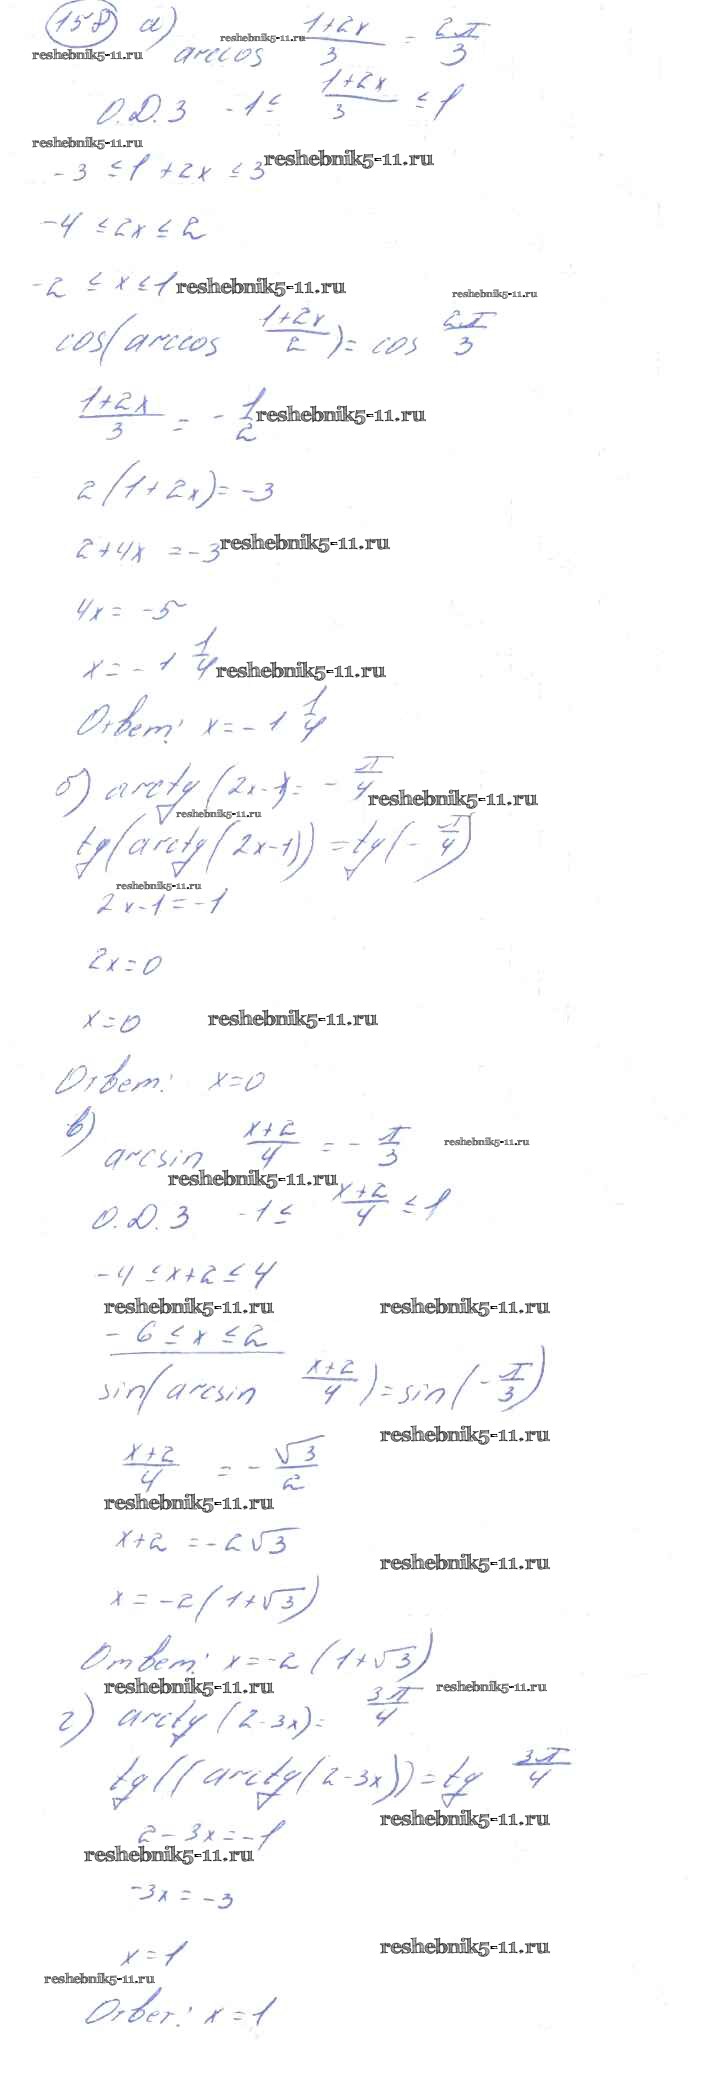 158 а) arccos (1+2x)/3 = 2π/3
reshebnik5-11.ru reshebnik5-11.ru
О.Д.З -1≤ (1+2x)/3 ≤1
reshebnik5-11.ru
reshebnik5-11.ru
-3 ≤1+2x ≤3
-4 ≤2x ≤2
-2 ≤ x ≤1 reshebnik5-11.ru
reshebnik5-11.ru
cos(arccos (1+2x)/2) = cos 2π/3
(1+2x)/3 = - 1/2 reshebnik5-11.ru
2(1+2x)=-3
2+4x =-3 reshebnik5-11.ru
4x= -5
x=-1 1/4 reshebnik5-11.ru
Ответ: x=-1 1/4
б) arctg(2x-1)= - π/4 reshebnik5-11.ru
reshebnik5-11.ru
tg(arctg(2x-1))=tg(-π/4)
reshebnik5-11.ru
2x-1=-1
2x=0
x=0 reshebnik5-11.ru
Ответ: x=0
в) arcsin (x+2)/4 = - π/3 reshebnik5-11.ru
reshebnik5-11.ru
О.Д.З -1≤ (x+2)/4 ≤1
-4 ≤x+2≤4
reshebnik5-11.ru reshebnik5-11.ru
-6 ≤x ≤2
sin(arcsin (x+2)/4)=sin(-π/3)
reshebnik5-11.ru
(x+2)/4 = - √3/2
reshebnik5-11.ru
x+2 =-2√3
reshebnik5-11.ru
x=-2(1+√3)
Ответ: x=-2(1+√3)
reshebnik5-11.ru reshebnik5-11.ru
г) arctg(2-3x)= 3π/4
tg((arctg(2-3x))=tg 3π/4
reshebnik5-11.ru
2-3x=-1
reshebnik5-11.ru
-3x=-3
x=1 reshebnik5-11.ru
reshebnik5-11.ru
Ответ: x=1